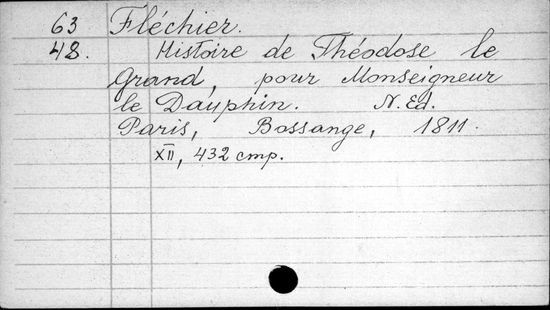 63 Fléchier.
48. Histoire de Théodose le
Grand, pour Monseigneur
le Dauphin. N. Ed.
Paris, Bossange, 1811.
XII, 432 стр.